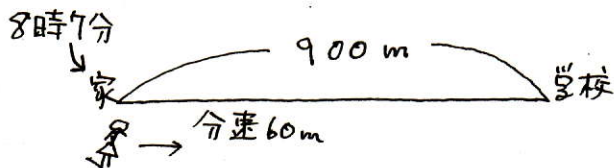 8時7分
900m
家
学校
分速60m